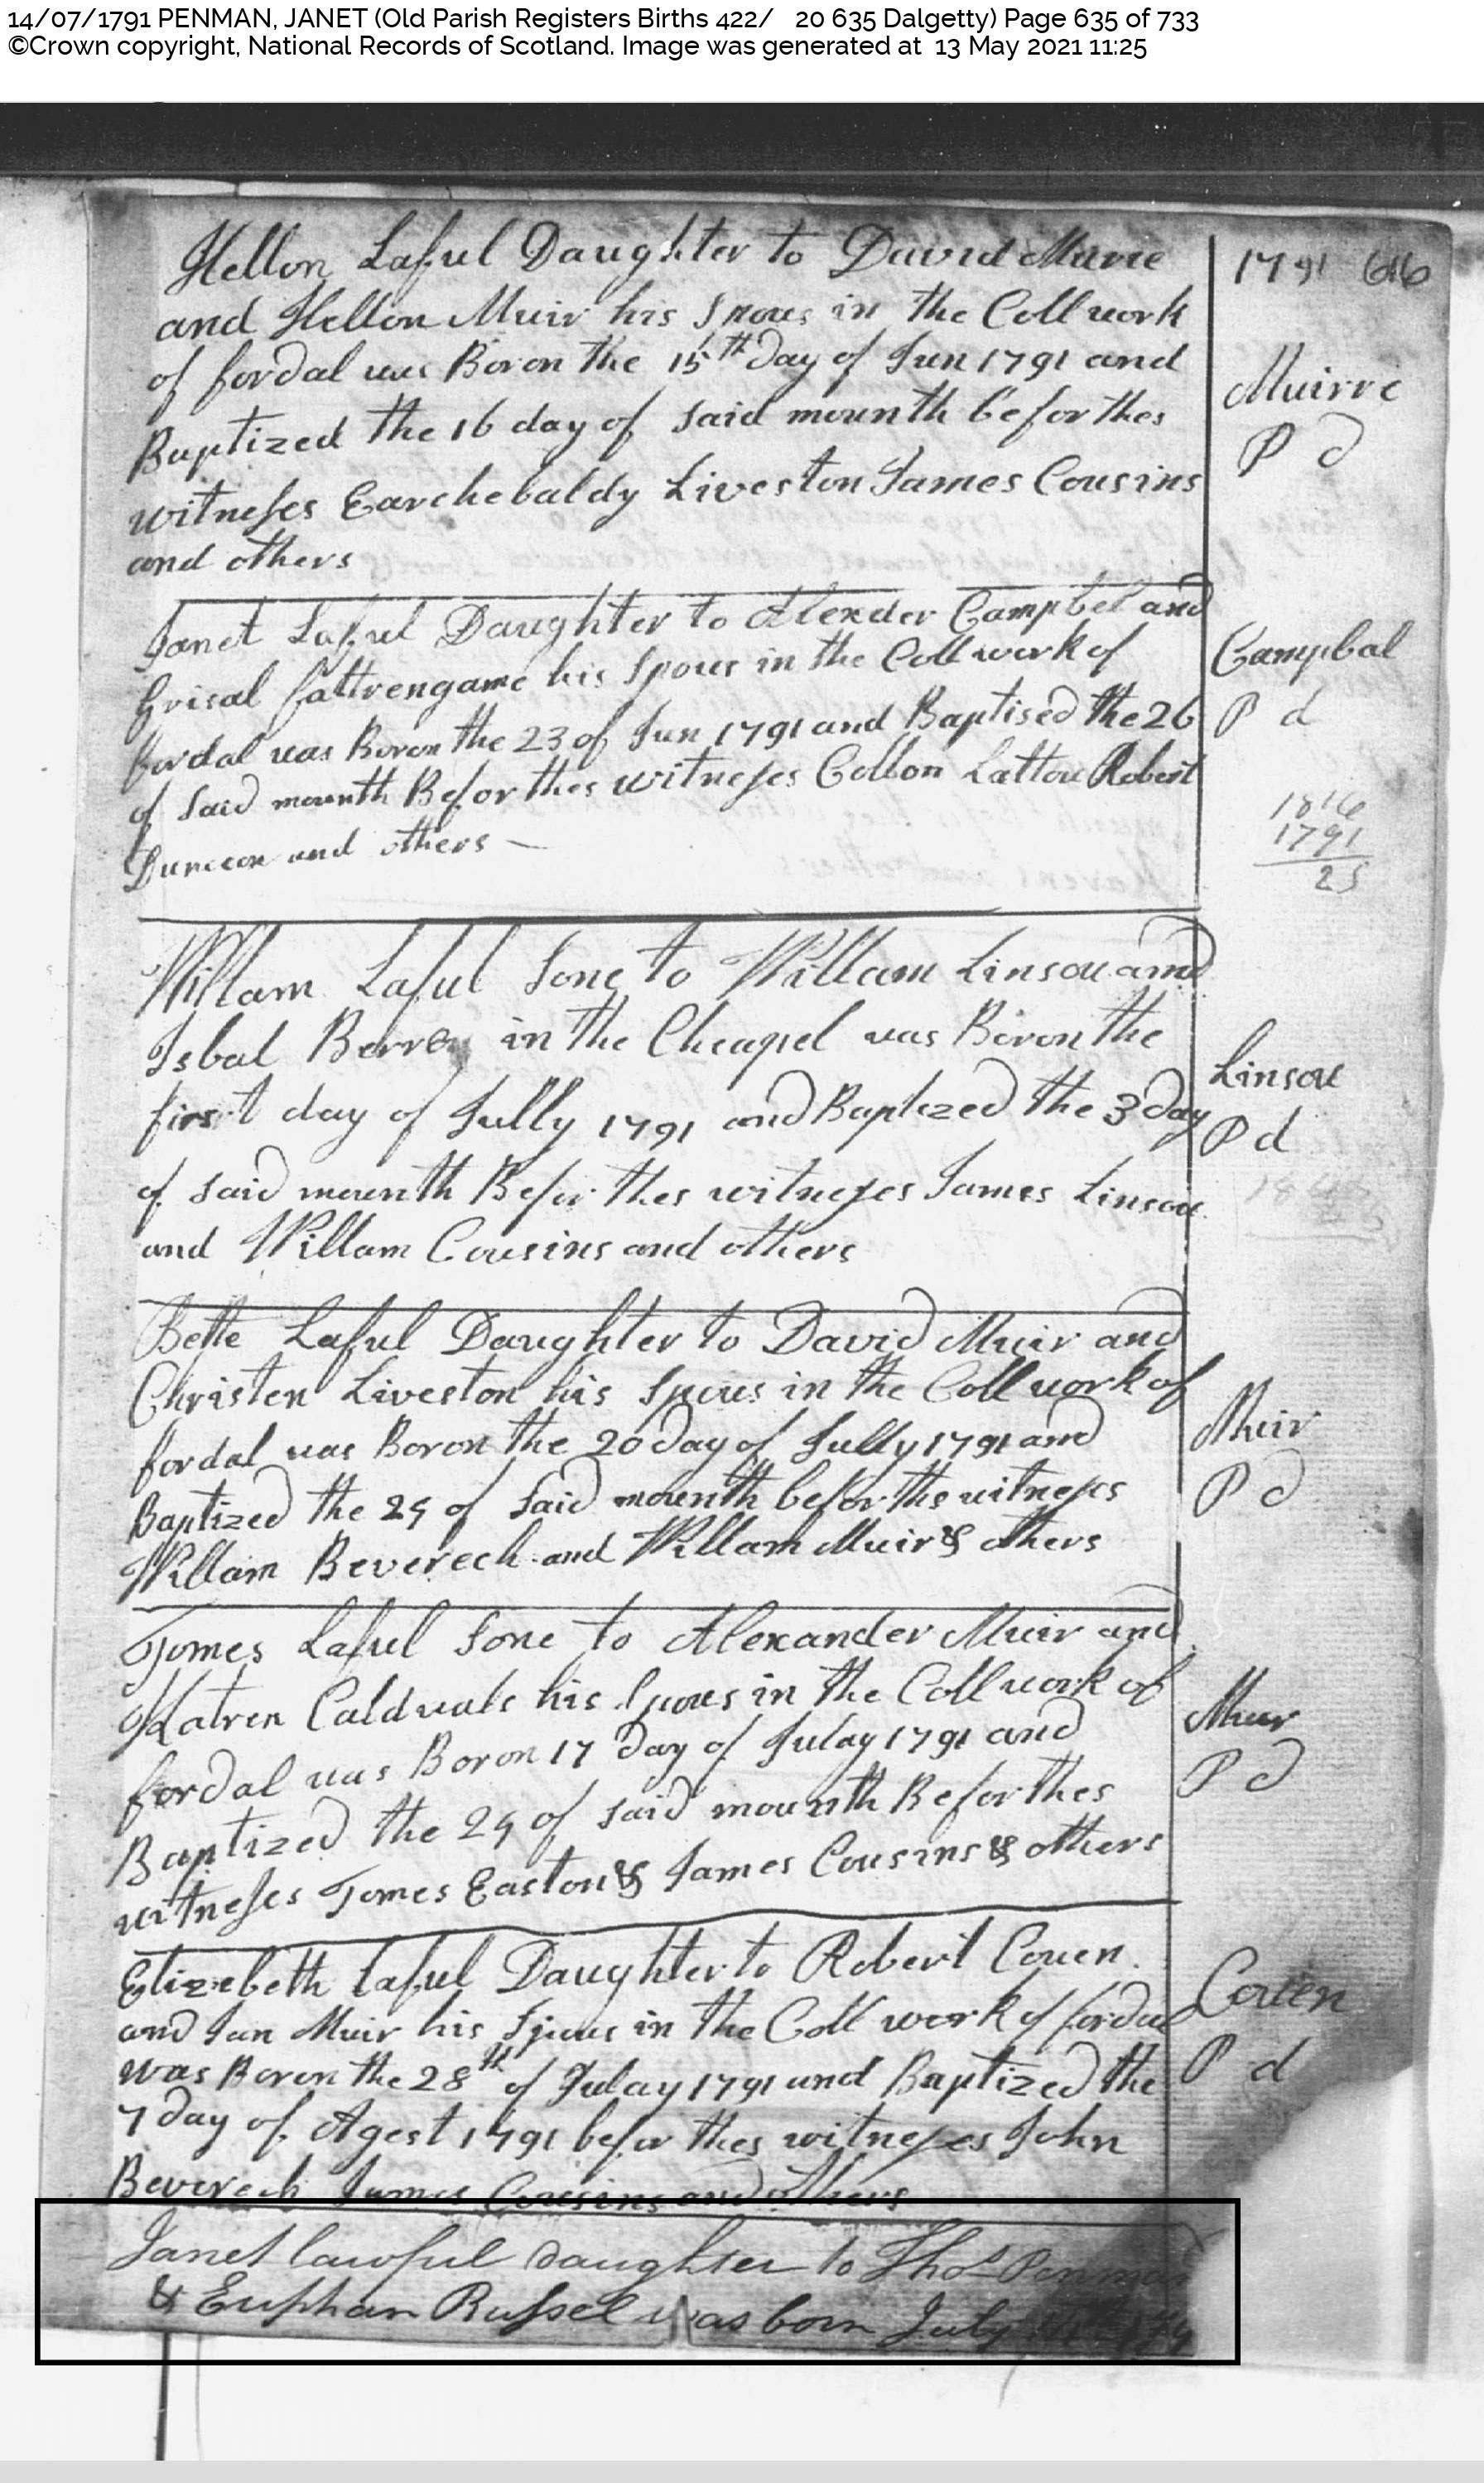 14/07/1791 PENMAN, JANET (Old Parish Registers Births 422/ 20 635 Dalgetty) Page 635 of 733
©Crown copyright, National Records of Scotland. Image was generated at 13 May 2021 11:25
1791 616
Hellon Laful Daughter to David Murie
and Hellon Muir his Spous in the Coll work
of fordal was Boron the 15th day of Jun 1791 and
Baptized the 16 day of said mounth befor thes
witneses Earchebaldy Liveston James Cousins
and others
Muirre
P d
Janet Laful Daughter to Alexder Campbel and
Grisal fattrengame his Spous in the Coll work of
fordal was Boron the 23 of Jun 1791 and Baptised the 26
of said mounth Befor thes witneses Collon Lattou Robert
Duncan and others —
Campbal
P d
1816
1791
25
Willam Laful Sone to Willam Linsou and
Isbal Berrey in the Cheapel was Boron the
first day of Jully 1791 and Baptized the 3 day
of said mounth Befor thes witneses James Linsou
and Willam Cousins and others
Linsou
P d
Bette Laful Daughter to David Muir and
Christen Liveston his Spous in the Coll work of
fordal was Boron the 20 day of Jully 1791 and
Baptized the 24 of said mounth befor the witneses
Willam Beverech and Willam Muir & others
Muir
P d
Tomes Laful Sone to Alexander Muir and
Katren Calduals his Spous in the Coll work of
fordal was Boron 17 day of Julay 1791 and
Baptized the 24 of said mounth Befor thes
witneses Tomes Easton & James Cousins & others
Muir
P d
Elizebeth Laful Daughter to Robert Couen
and Jan Muir his Spous in the Coll work of fordal
was Boron the 28th of Julay 1791 and Baptized the
7 day of Agest 1791 befor thes witneses John
Beverech James Cousins and others
Couen
P d
Janet lawful daughter to Thos Penman
& Euphan Russel was born July